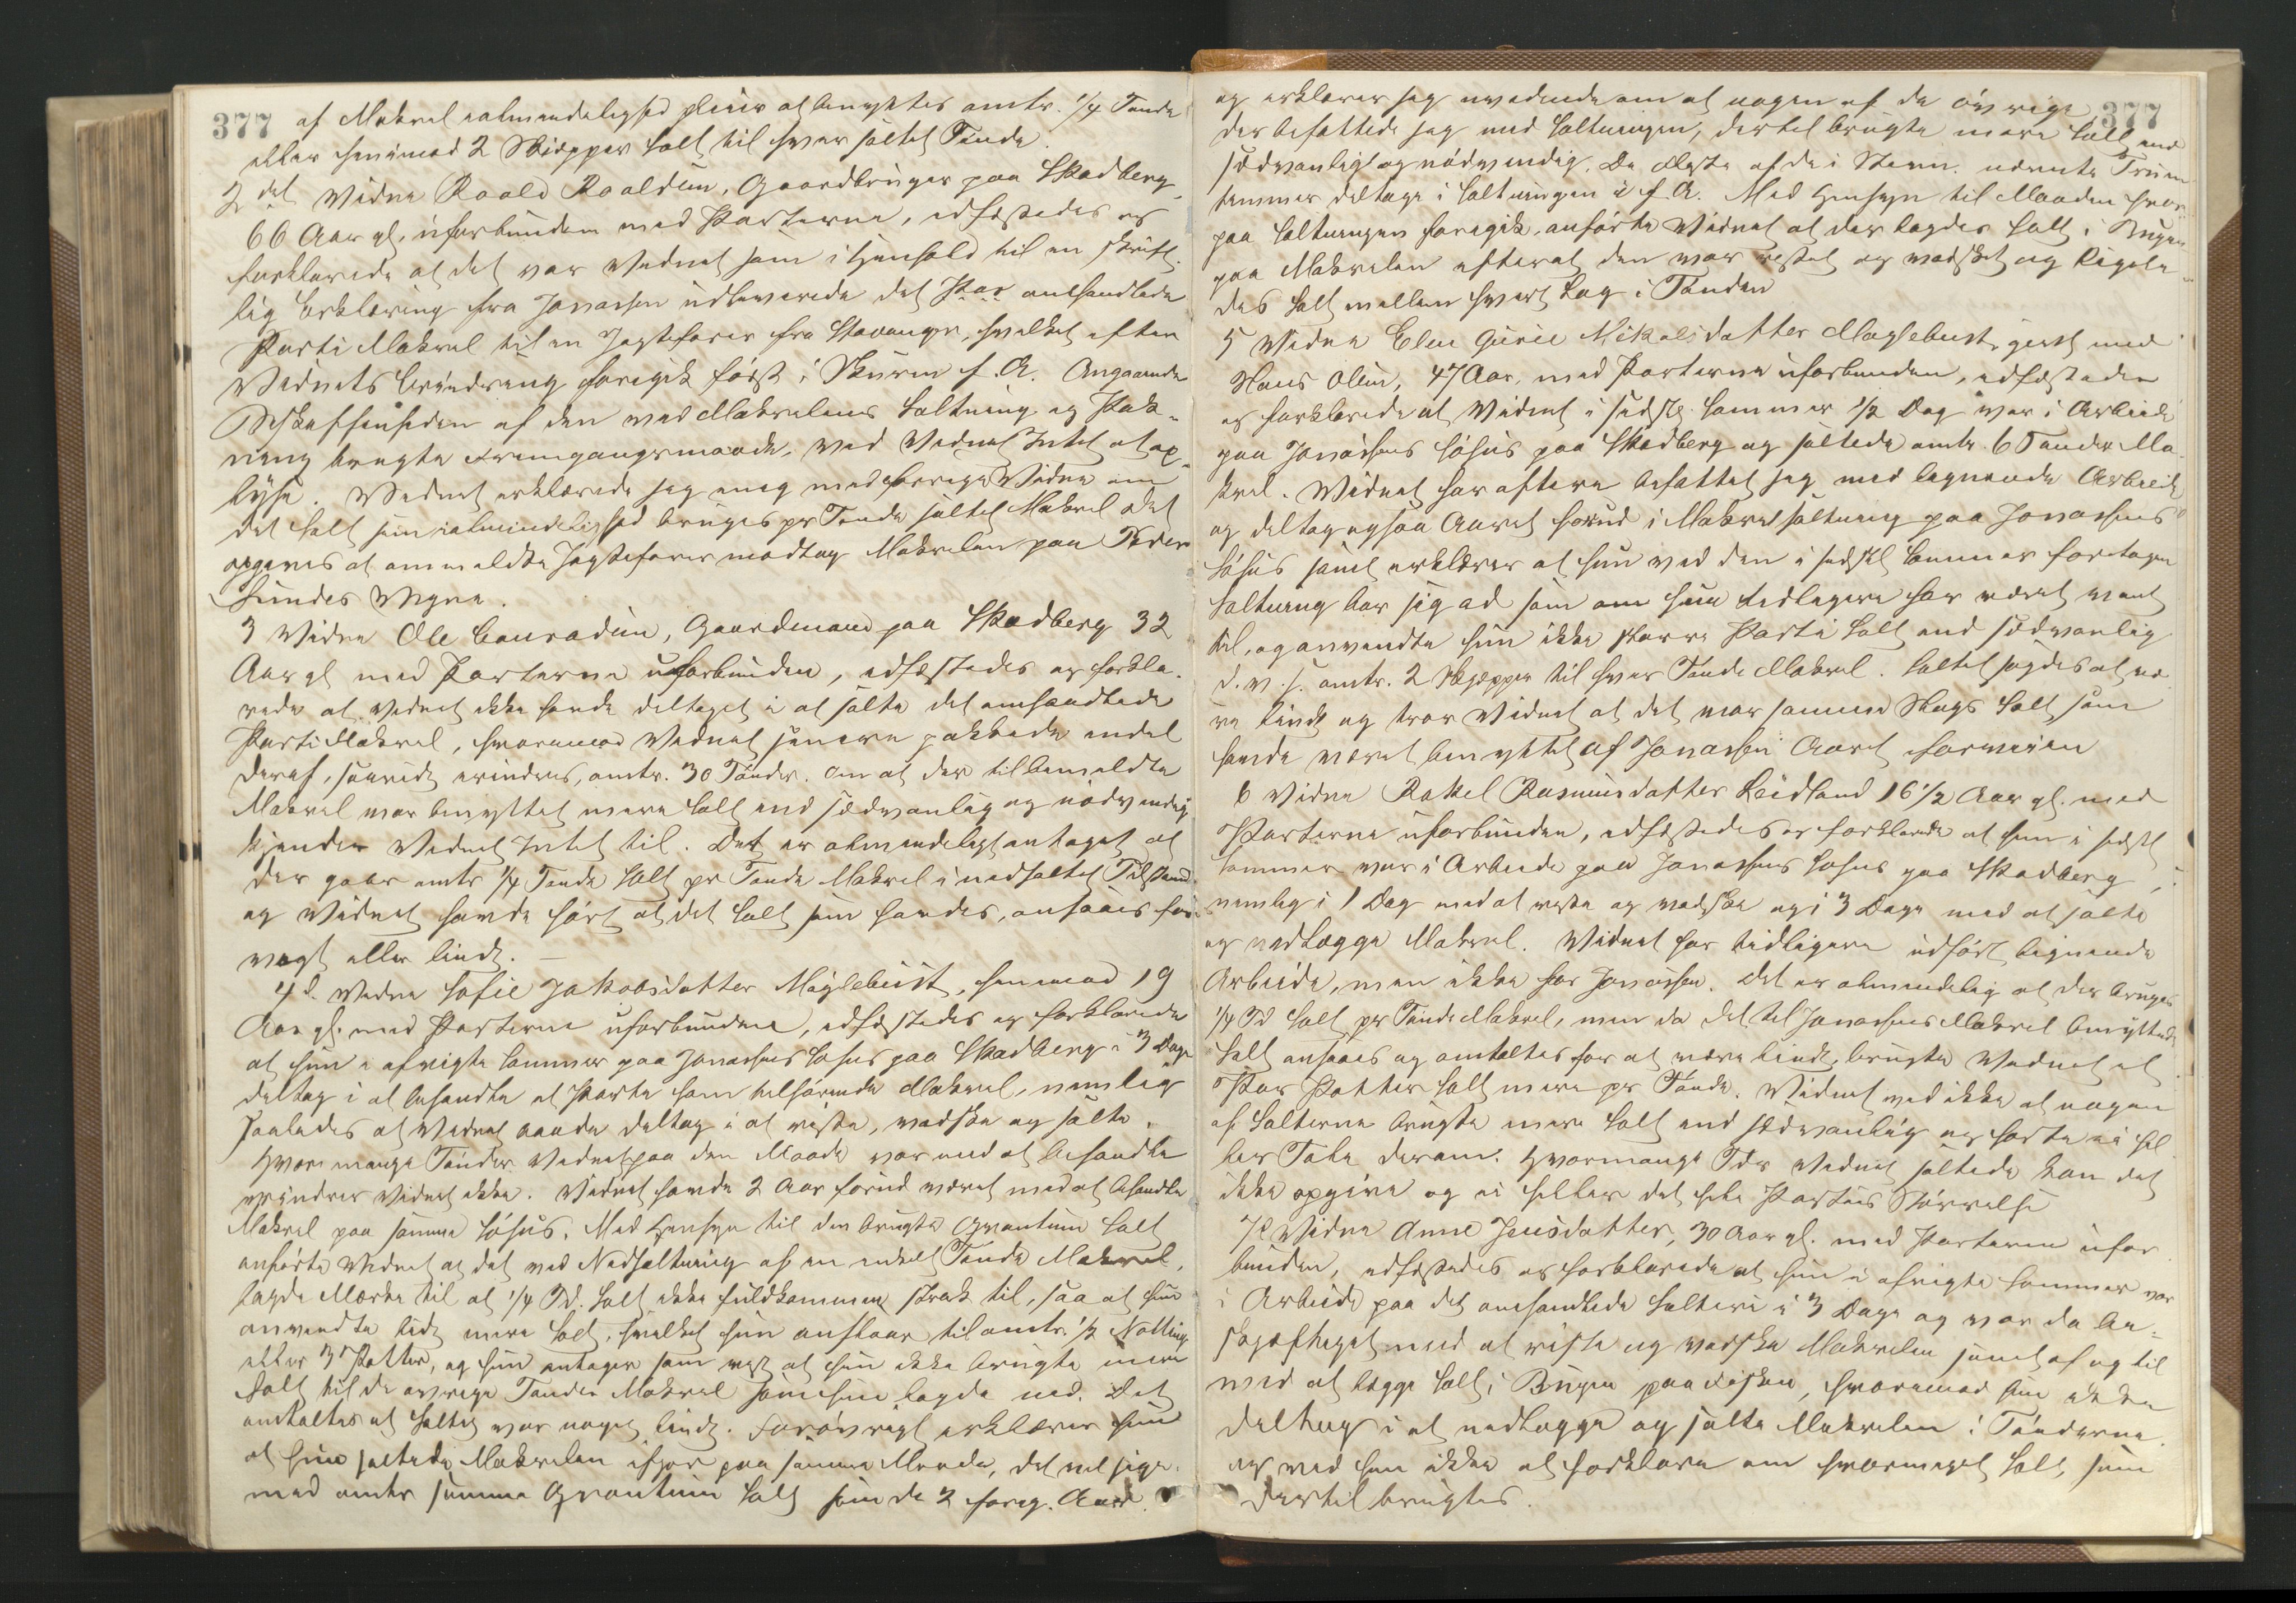 377
af Makrel ialmindelighed pleier at benyttes omtr. 1/4 Tønde
eller henimod 2 Skjepper Salt til hver saltet Tønde.
2det Vidne Roald Roaldsen, Gaardbruger paa Skadberg
66 Aar gl. uforbunden med Parterne, edfæstedes og
forklarede at det var Vidnet som i Henhold til en skrift-
lig Erklæring fra Jonassen udleverede det her omhandlede
Parti Makrel til en Jagtefører fra Stavanger, hvilket efter
Vidnets Erindring foregik først i Skuren f. A. Angaaende
Beskaffenheden af den ved Makrelens Saltning og Pak-
ning brugte Fremgangsmaade, ved Vidnet Intet at op-
lyse. Vidnet erklærede sig enig med forrige Vidne om
det Salt som ialmindelighed bruges pr Tønde saltet Makrel Det
opgives at ommeldte Jagtefører modtog Makrelen paa Peder
Vegne.
3 Vidne Ole Conradsen, Gaardmand paa Skadberg 32
Aar gl. med Parterne uforbunden, edfæstedes og forkla-
rede at Vidnet ikke havde deltaget i at salte det omhandlede
Parti Makrel, hvorimod Vidnet senere pakkede endel
deraf, saavidt erindres, omtr. 30 Tønder. Om at der til bemeldte
Makrel var benyttet mere Salt end sædvanlig og nødvendig
kjender Vidnet Intet til. Det er almindeligt antaget at
der gaar omtr 1/4 Tønde Salt pr Tønde Makrel i nedsaltet Tilstand
og Vidnet havde hørt at det Salt som havdes, ansaaes for
vegt eller lindt. —
4d. Vidne Sofie Jakobsdatter Møglebust, henimod 19
Aar gl. med Parterne uforbunden, edfæstedes og forklarede
at hun i afvigte Sommer paa Jonassens Søhus paa Skadberg i 3 Dage
deltog i at behandle et Parti ham tilhørende Makrel, nemlig
saaledes at Vidnet baade deltog i at riste, vadske og salte.
Hvor mange Tønder Vidnet paa den Maade var med at behandle
erindrer Vidnet ikke. Vidnet havde 2 Aar forud været med at behandle
Makrel paa samme Søhus. Med Hensyn til den brugte Qvantum Salt
anførte Vidnet at det ved Nedsaltning af en enkelt Tønde Makrel,
lagde Mærke til at 1/4 Td. Salt ikke fuldkommen strak til, saa at hun
anvendte lidt mere Salt, hvilket hun anslaar til omtr. 1/2 Notting
eller 3 Potter, og hun antager som vist at hun ikke brugte mere
Salt til de øvrige Tønder Makrel som hun lagde ned. Det
omtaltes at Saltet var noget lindt. Forøvrigt erklærer hun
at hun saltede Makrelen ifjor paa samme Maade, det vil sige
med omtr samme Qvantum Salt som de 2 foreg. Aar.
377
og erklærer sig uvidende om at nogen af de øvrige
der befattede sig med Saltningen, dertil brugte mere Salt end
sædvanlig og nødvendig. De fleste af de i Stevn. nævnte Fruen-
timmer deltog i Saltningen i f. A. Med Hensyn til Maaden hvor-
paa Saltningen foregik, anførte Vidnet at der lagdes Salt i Bugen
paa Makrelen efterat den var ristet og vadsket og ligele-
des Salt mellem hvert Lag i Tønden
5 Vidne Elen Gurie Mikalsdatter Møglebust, gift med
Hans Olsen, 47 Aar, med Parterne uforbunden, edfæstedes
og forklarede at Vidnet i sidste Sommer 1/2 Dag var i Arbeide
paa Jonassens Søhus paa Skadberg og saltede omtr. 6 Tønder Ma-
krel. Vidnet har oftere befattet sig med lignende Arbeide
og deltog ogsaa Aaret forud i Makrelsaltning paa Jonassens
Søhus samt erklærer at hun ved den i sidste Sommer foretagne
Saltning bar sig ad som om hun tidligere har været vant
til, og anvendte hun ikke større Parti Salt end sædvanlig
d. v. s. omtr. 2 Skjepper til hver Tønde Makrel. Saltet sagdes at væ-
re lindt og tror Vidnet at det var samme Slags Salt som
havde været benyttet af Jonassen Aaret forveien
6 Vidne Rakel Rasmusdatter Leidland 16 1/2 Aar gl. med
Parterne uforbunden, edfæstedes og forklarede at hun i sidste
Sommer var i Arbeide paa Jonassens Søhus paa Skadberg,
nemlig i 1 Dag med at riste og vadske og i 3 Dage med at salte
og nedlægge Makrel. Vidnet har tidligere udført lignende
Arbeide, men ikke for Jonassen. Det er almindelig at der bruges
1/4 Td Salt pr Tønde Makrel, men da det til Jonassens Makrel benyttede
Salt ansaaes og omtaltes for at være lindt, brugte Vidnet et
Par Potter Salt mere pr Tønde. Vidnet ved ikke at nogen
af Salterne brugte mere Salt end sædvanlig og hørte ei hel-
ler Tale derom. Hvormange Tdr Vidnet saltede kan det
ikke opgive og ei heller det hele Partis Størrelse
7de Vidne Anne Jensdatter, 30 Aar gl. med Parterne ufor-
bunden, edfæstedes og forklarede at hun i afvigte Sommer var
i Arbeide paa det omhandlede Salteri i 3 Dage og var da be-
skjæftiget med at riste og vadske Makrelen samt af og til
med at lægge Salt i Bugen paa Fisken, hvorimod hun ikke
deltog i at nedlægge og salte Makrelen i Tønderne
og ved hun ikke at forklare om hvormeget Salt, som
dertil brugtes.